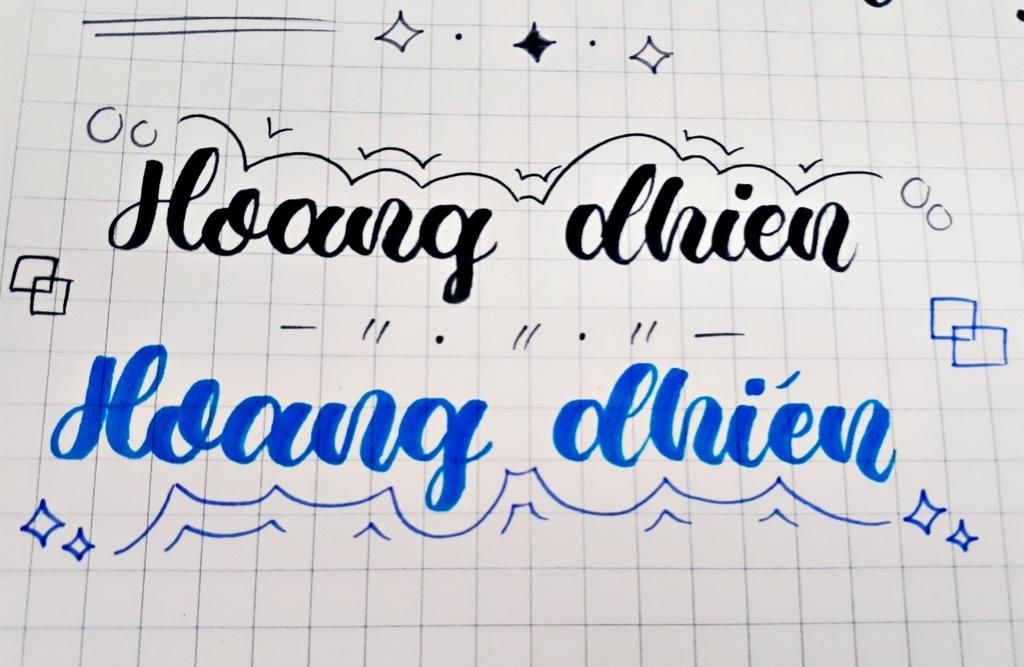 Hoang dhien
Hoang dhién